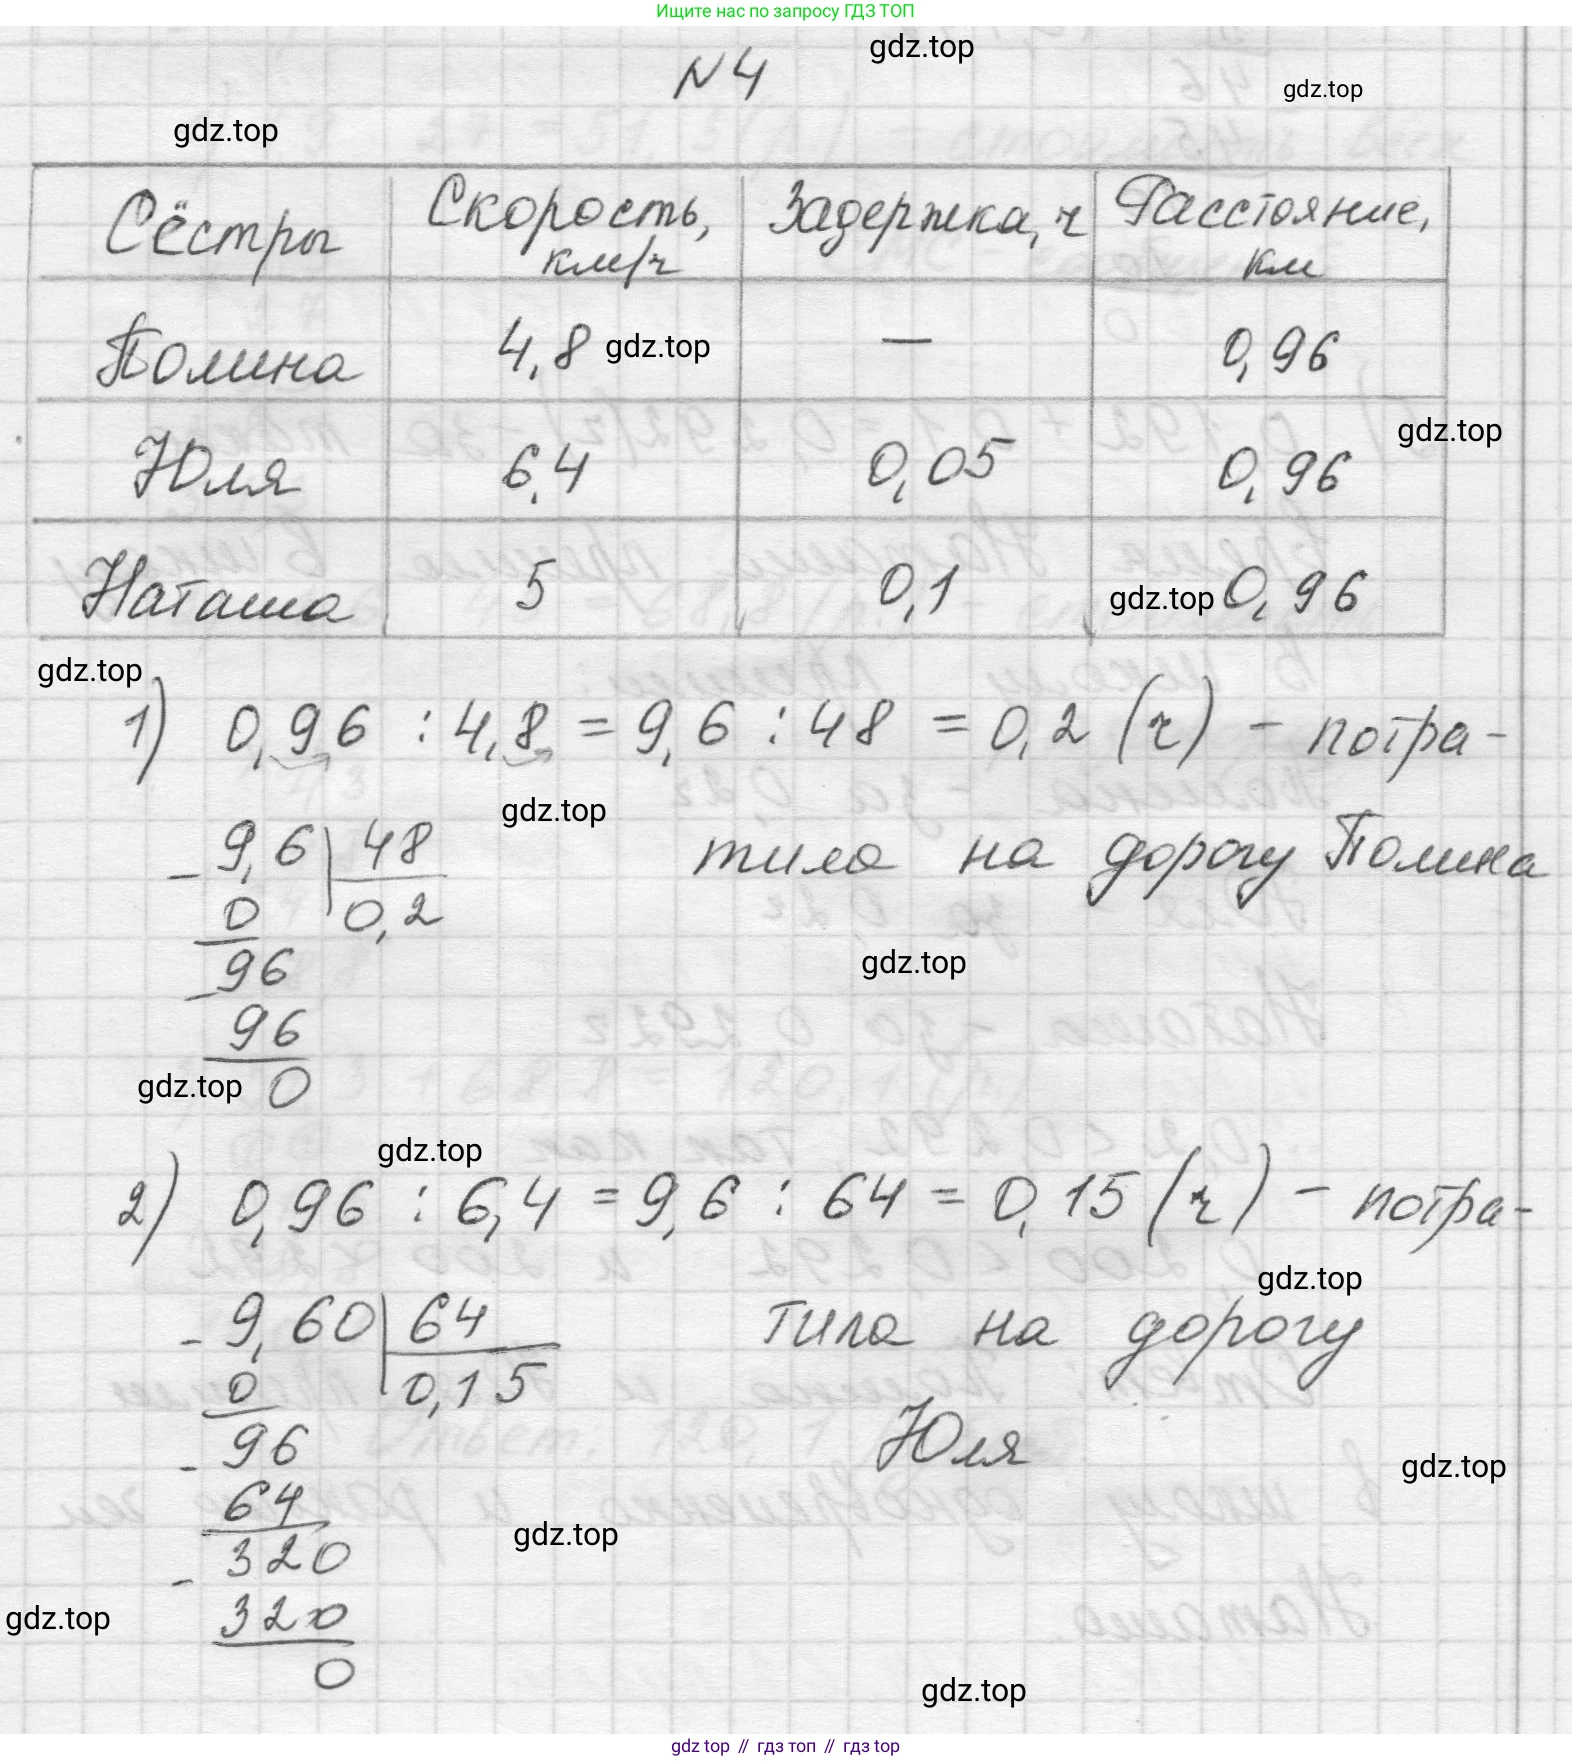 Ищите нас по запросу ГДЗ ТОП
gdz.top
N 4
gdz.top
gdz.top
Сёстры Скорость, км/ч Задержка, ч Расстояние, км
Полина 4,8 — 0,96
gdz.top
Юля 6,4 0,05 0,96
gdz.top
Наташа 5 0,1 0,96
gdz.top
gdz.top
1) 0,96 : 4,8 = 9,6 : 48 = 0,2 (ч) - потра-
gdz.top
- 9,6 | 48 тила на дорогу Полина
0 0,2
- 96
gdz.top
96
gdz.top 0
gdz.top
2) 0,96 : 6,4 = 9,6 : 64 = 0,15 (ч) - потра-
gdz.top
- 9,60 | 64 тила на дорогу
0 0,15
- 96 Юля
gdz.top
64
gdz.top
- 320
gdz.top 320
0
gdz.top
gdz top // гдз топ // гдз top